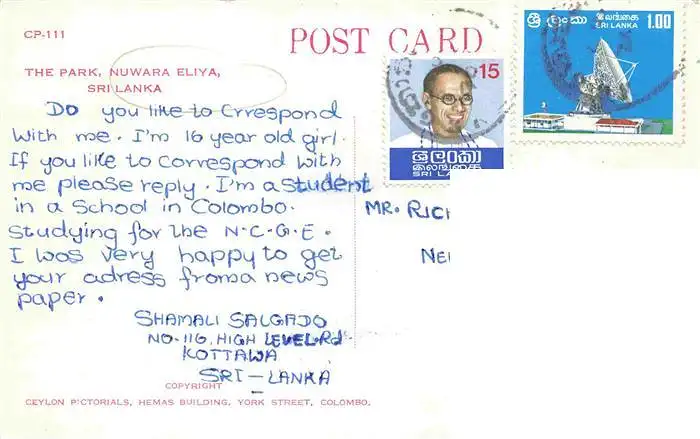 CP-111
POST CARD
THE PARK, NUWARA ELIYA,
SRI LANKA
ශ්‍රී ලංකා இலங்கை 1.00
SRI LANKA
15
ශ්‍රී ලංකා
இலங்கை
SRI LA
DO you like to Crrespond
with me. I'm 16 year old girl.
If you like to correspond with
me please reply. I'm a student
in a School in Colombo.
studying for the N.C.G.E.
I was very happy to get
your adress from a news
paper.
SHAMALI SALGADO
NO-116, HIGH LEVEL.Rd
KOTTAWA
SRI-LANKA
MR. RIC
NE
COPYRIGHT
CEYLON PICTORIALS, HEMAS BUILDING, YORK STREET, COLOMBO.